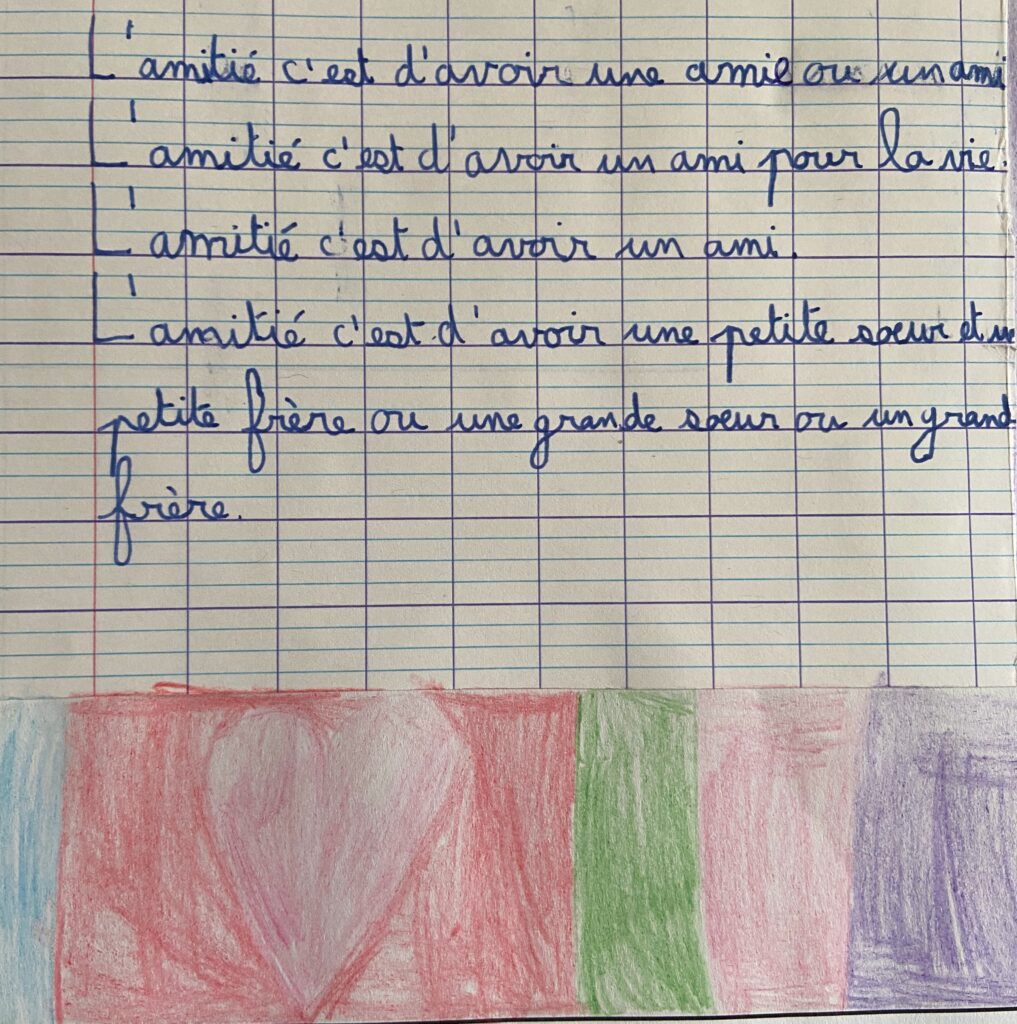 L'amitié c'est d'avoir une amie ou un ami
L'amitié c'est d'avoir un ami pour la vie.
L'amitié c'est d'avoir un ami.
L'amitié c'est d'avoir une petite soeur et un
petite frère ou une grande soeur ou un grand
frère.